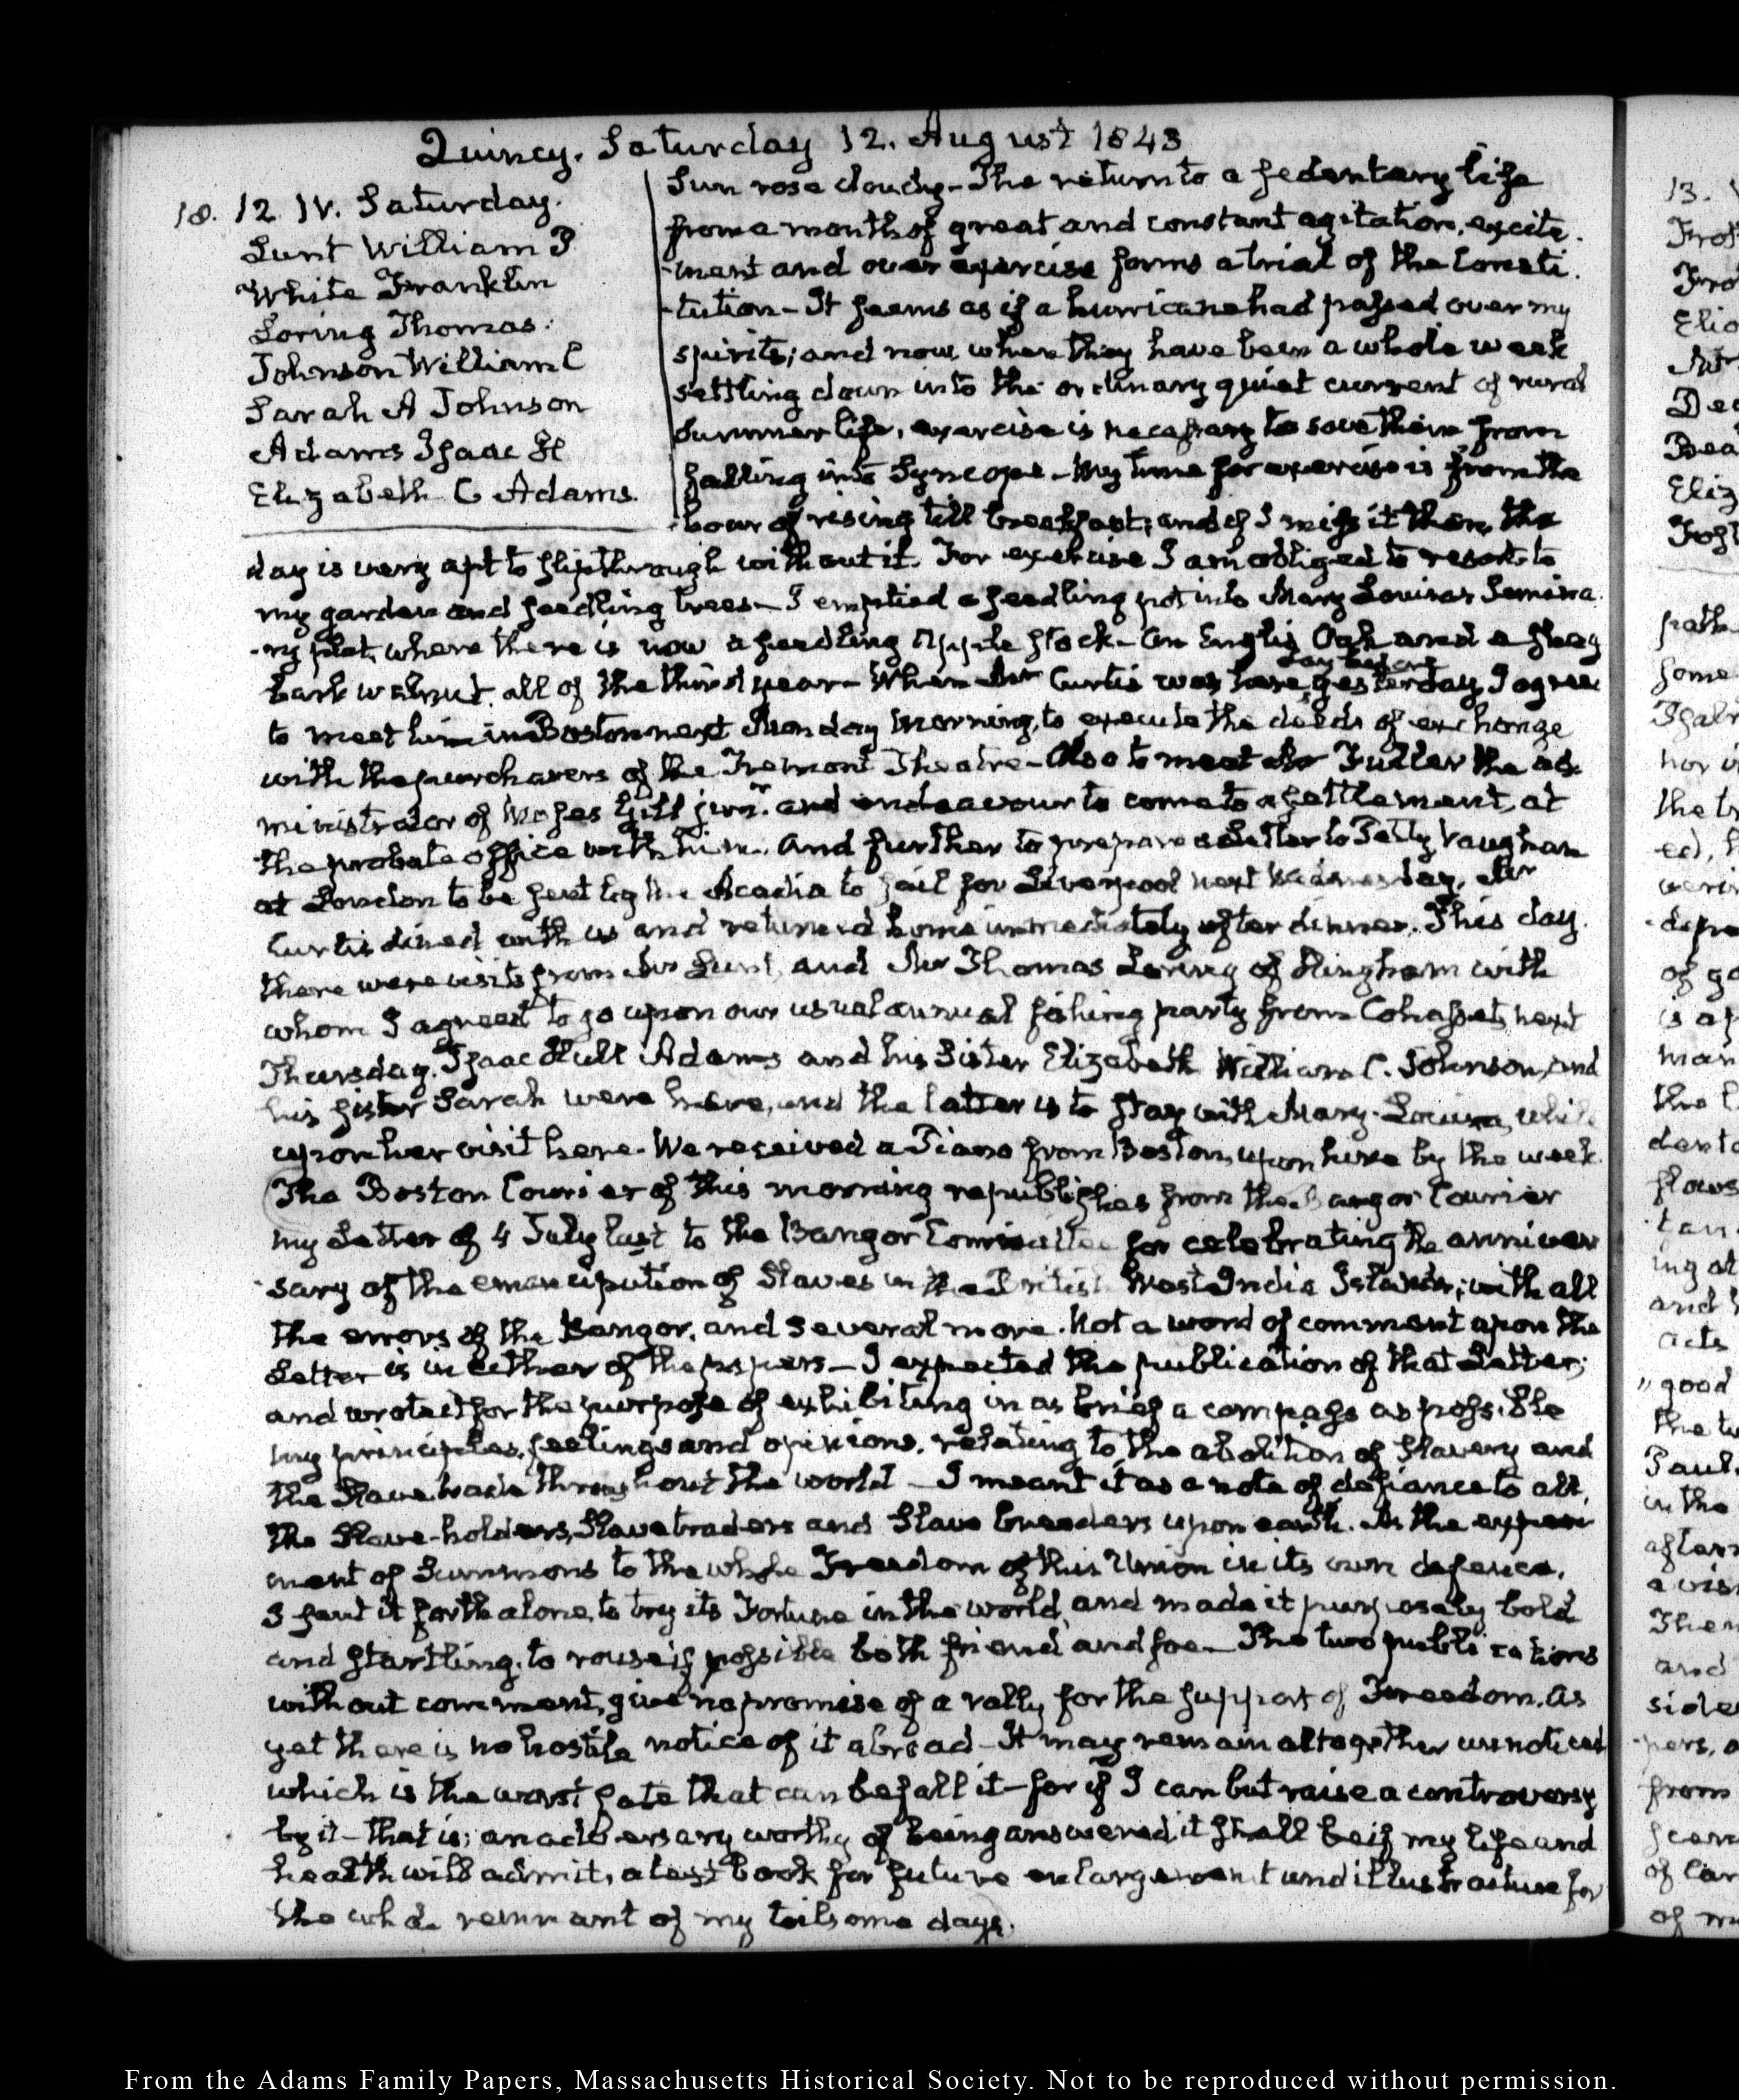 Quincy. Saturday 12. August 1843
18. 12. IV. Saturday.
Lunt William P
White Franklin
Loring Thomas.
Johnson William C
Sarah A Johnson
Adams Isaac H
Elizabeth C Adams.
Sun rose cloudy - The return to a sedentary life
from a month of great and constant agitation, excite-
-ment and over exercise forms a trial of the Consti-
-tution - It seems as if a hurricane had passed over my
spirits; and now when they have been a whole week
settling down into the ordinary quiet current of rural
summer life, exercise is necessary to save them from
falling into Syncope - My time for exercise is from the
hour of rising till breakfast; and if I miss it then, the
day is very apt to slip through without it. For exercise I am obliged to resort to
my garden and seedling trees - I emptied a seedling pot into Mary Louisa's Semina-
-ry plat, where there is now a seedling Apple stock - An English Oak and a shag
bark walnut, all of the third year - When Mr Curtis was here, day before yesterday, I agreed
to meet him in Boston next Monday Morning, to execute the deeds of exchange
with the purchasers of the Tremont Theatre - Also to meet Mr Fuller the ad-
ministrator of Moses Gill junr. and endeavour to come to a settlement, at
the probate office with him. And further to prepare a Letter to Petty Vaughan
at London to be sent by the Acadia to sail for Liverpool next Wednesday. Mr
Curtis dined with us and returned home immediately after dinner. This day
there were visits from Mr Lunt, and Mr Thomas Loring of Hingham with
whom I agreed to go upon our usual annual fishing party from Cohasset, next
Thursday. Isaac Hull Adams and his Sister Elizabeth William C. Johnson, and
his sister Sarah were here, and the latter is to stay with Mary-Louisa, while
upon her visit here. We received a Piano from Boston, upon hire by the week.
The Boston Courier of this morning republishes from the Bangor Courier
my Letter of 4 July last to the Bangor Committee for celebrating the anniver
-sary of the emancipation of Slaves in the British West India Islands; with all
the errors of the Bangor, and several more. Not a word of comment upon the
Letter is in either of the papers - I expected the publication of that Letter;
and wrote it for the purpose of exhibiting in as brief a compass as possible
my principles, feelings and opinions, relating to the abolition of Slavery and
the Slave-trade throughout the world - I meant it as a note of defiance to all
the Slave-holders, Slave traders and Slave breeders upon earth. As the experi
ment of Summons to the whole Freedom of this Union in its own defence,
I sent it forth alone, to try its Fortune in the world, and made it purposely bold
and startling, to rouse if possible both friend and foe - The two publications
without comment, give no promise of a rally for the support of Freedom. As
yet there is no hostile notice of it abroad - It may remain altogether unnoticed
which is the worst fate that can befall it - for if I can but raise a controversy
by it - that is; an adversary worthy of being answered, it shall be if my life and
health will admit, a text book for future enlargement and illustration for
the whole remnant of my toilsome days.
13.
Elio
Eliz
path
some
nor
the
ed,
of
is
man
the
ing at
and
acts
"good
the
Paul.
in the
Then
and
side
pers,
from
of
of
From the Adams Family Papers, Massachusetts Historical Society. Not to be reproduced without permission.